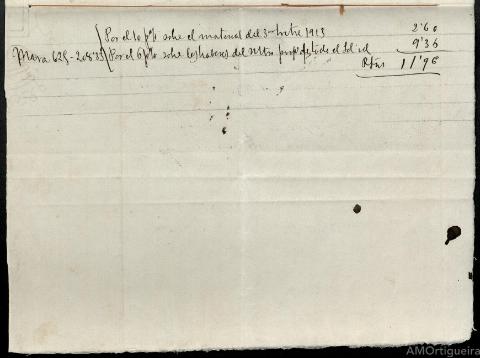 Por el 10 p% sobre el material del 3er tritre 1913 2'60
Mera. 625 - 208'33 Por el 6 p% sobre los haberes del Mtro propo desde el 1 al
9'36
Ptas 11'96
AMOrtigueira